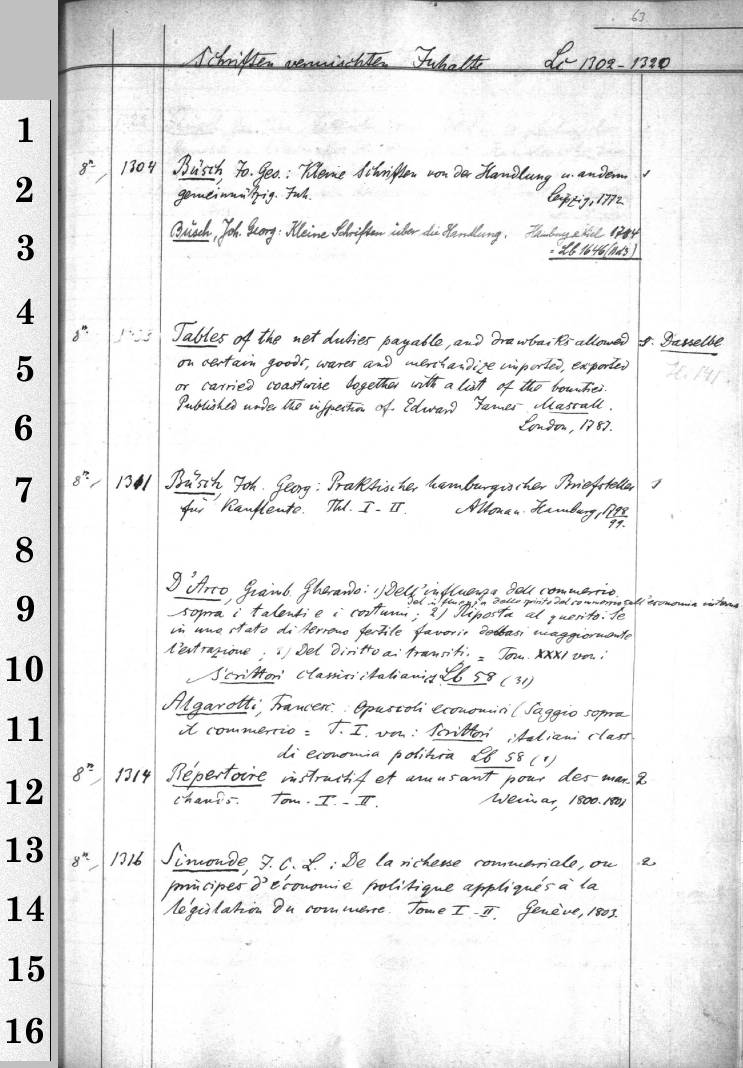 63
Schriften vermischten Inhalts Lc 1302-1320
8°, 1304 Büsch, Jo. Geo.: Kleine Schriften von der Handlung u. anderm 1
gemeinnützig. Inh. Leipzig, 1772
Büsch, Joh. Georg: Kleine Schriften über die Handlung. Hamburg & Kiel 1784
= Lb 1646 (Nd3)
8° Tables of the net duties payable, and drawbacks allowed 1. Dasselbe
on certain goods, wares and merchandize imported, exported
or carried coastwise together with a list of the bounties.
Published under the inspection of Edward James Mascall.
London, 1787.
8°, 1311 Büsch, Joh. Georg: Praktischer hamburgischer Briefsteller 1
für Kaufleute. Thl. I-II. Altona u. Hamburg, 1798/99.
D'Arco, Giamb. Gherardo: 1) Dell'influenza dell commercio
dell'influenza dello spirito del commercio sull'economia interna
sopra i talenti e i costumi; 2) Risposta al quesito: Se
in uno stato di terreno fertile favorir debbasi maggiormente
l'estrazione; 3) Del diritto ai transiti. = Tom. XXXI von:
Scrittori classici italiani Lb 58 (31)
Algarotti, Francesc.: Opuscoli economici (Saggio sopra
il commercio = T. I. von: Scrittori italiani class.
di economia politica Lb 58 (1)
8°, 1314 Répertoire instructif et amusant pour des mar- 2
chands. Tom. I.-II. Weimar, 1800-1801
8°, 1316 Simonde, J. C. L.: De la richesse commerciale, ou 2
principes d'économie politique appliqués à la
législation du commerce. Tome I-II. Genève, 1803.
1
2
3
4
5
6
7
8
9
10
11
12
13
14
15
16